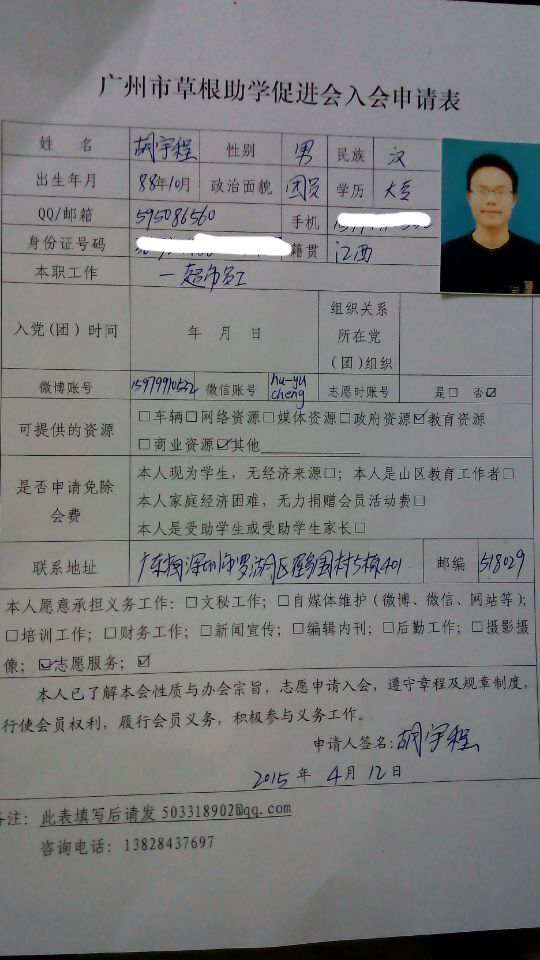 广州市草根助学促进会入会申请表
姓 名 胡宇程 性别 男 民族 汉
出生年月 88年10月 政治面貌 团员 学历 大专
QQ/邮箱 595086560 手机
身份证号码 籍贯 江西
本职工作 一超市员工
入党(团)时间 年 月 日 组织关系
所在党
(团)组织
微博账号 15979910532 微信账号 hu-yu
cheng 志愿时账号 是□ 否☑
可提供的资源 □车辆□网络资源□媒体资源□政府资源☑教育资源
□商业资源☑其他
是否申请免除
会费
本人现为学生，无经济来源□；本人是山区教育工作者□
本人家庭经济困难，无力捐赠会员活动费□
本人是受助学生或受助学生家长□
联系地址 广东省深圳市罗湖区 园村5栋401 邮编 518029
本人愿意承担义务工作：□文秘工作；□自媒体维护（微博、微信、网站等）；
□培训工作；□财务工作；□新闻宣传；□编辑内刊；□后勤工作；□摄影摄
像；☑志愿服务；☑
本人已了解本会性质与办会宗旨，志愿申请入会，遵守章程及规章制度，
行使会员权利，履行会员义务，积极参与义务工作。
申请人签名：胡宇程
2015 年 4 月 12 日
备注：此表填写后请发 503318902@qq.com
咨询电话：13828437697